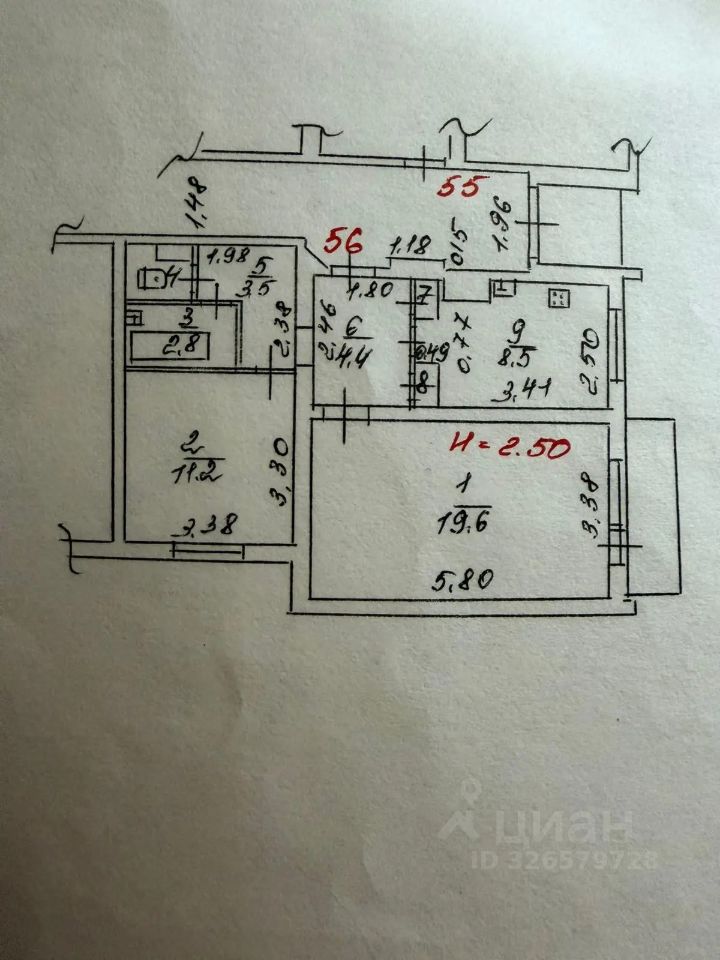 55
1.48
56
1.18
0.15
1.96
1.98
5
3.5
4
1.80
7
3
2.8
2.38
2.46
6
4.4
0.49
8
0.77
9
8.5
3.41
2.50
2
11.2
3.30
3.38
H = 2.50
1
19.6
3.38
5.80
циан
ID 326579728